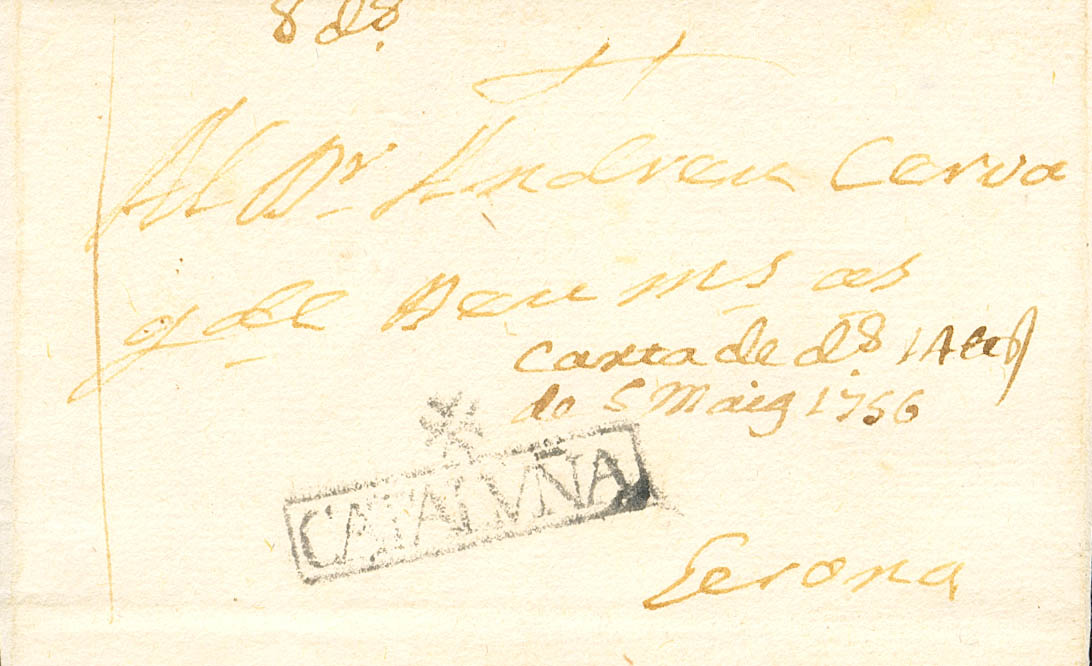 8 ds.
Al Dr. Andreu Cerva
y de ms as
carta de ds
de 5 Maig 1756
CATALVÑA
Gerona